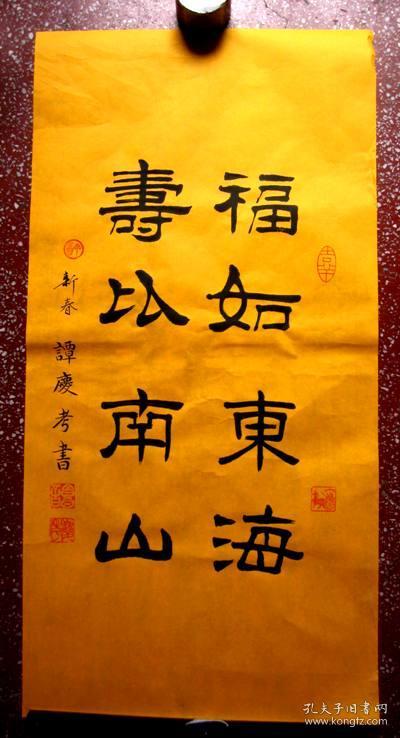 福如東海
壽比南山
新春 譚慶考書
孔夫子旧書网
www.kongfz.com